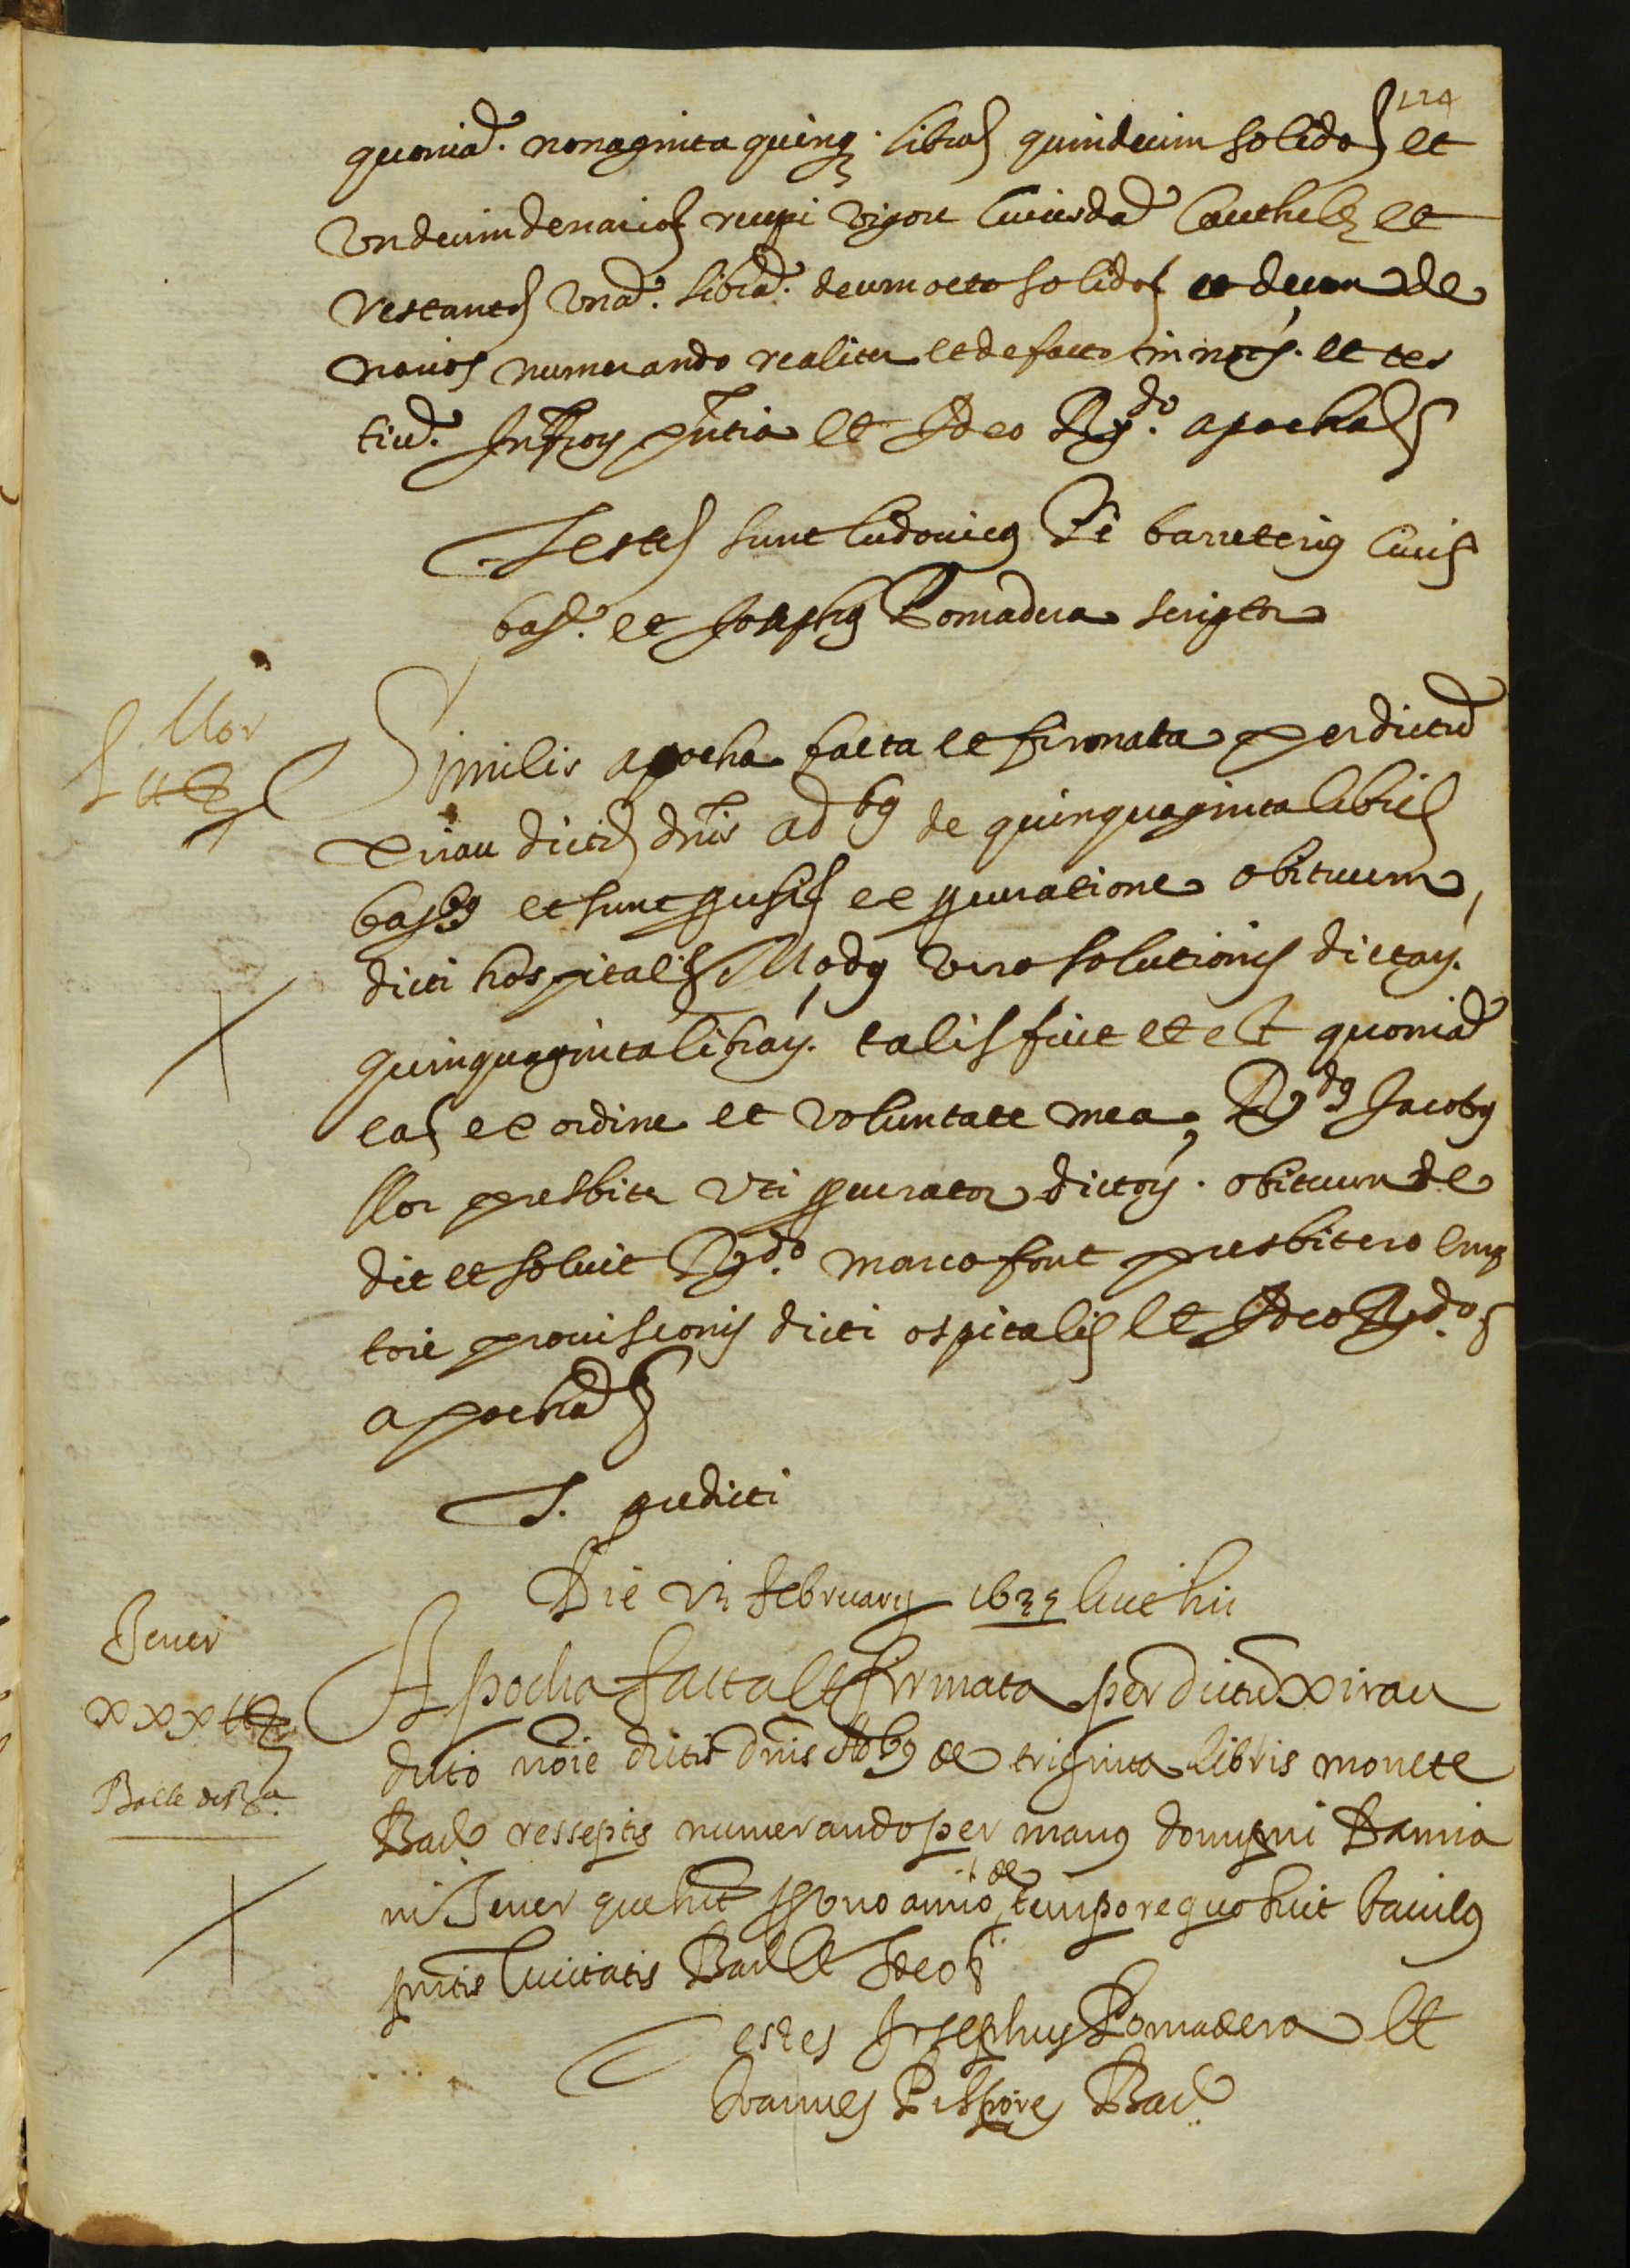 124
quoniã. nonaginta quinq. libras quindecim solidos et
undecim denarios recepi vigore cuiusdã cauthele et
restantes unã. librã. decem octo solidos et decem de
narios numerando realiter et de facto in not. et tes
tiũ. infror pntia et Ideo Rdo. apochas
Testes sunt ludovicus Pi barreterius civis
bar. et Josephus Pomadera scriptor
Llor
L ll
Similis apocha facta et firmata per dictũ
xirau dictis dnis adbus de quinquaginta libris
barbus et sunt pro pensis et procuratione obituum
dicti hospitalis Modus vero solutionis dictar.
quinquaginta librar. talis fuit et est quoniã
eas ex ordine et voluntate mea Rdus Jacobus
llor presbiter uti procurator dictor. obituum de
dit et solvit Rdo. marco font presbitero emp
tori provisionis dicti ospitalis et Ideo Rdo.
apochã
T. predicti
Die vi february 1639
Jener
xxx ll
Balle de Ba.
Apocha facta et firmata per dictũ xirau
dicto noie dictis dnis Adbus de triginta libris monete
Bar resseptis numerando per manus dompni Damia
ni Jener que sunt pro uno anno de tempore quo fuit baiulus
pntis Civitatis Bar et Ideo
Testes Josephus Pomadera et
Joannes Bar